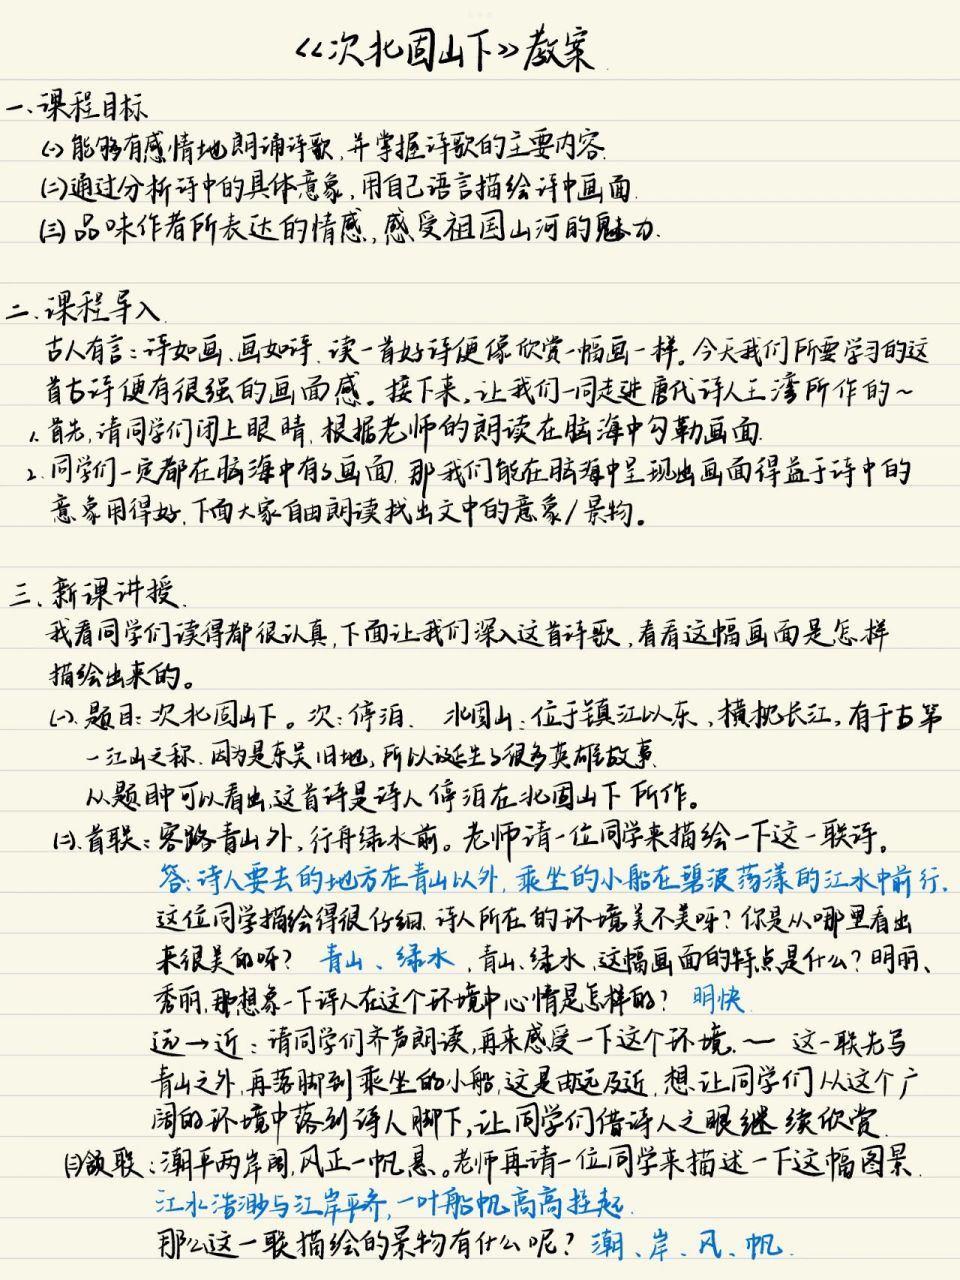 《次北固山下》教案
一、课程目标
(一)能够有感情地朗诵诗歌,并掌握诗歌的主要内容.
(二)通过分析诗中的具体意象,用自己语言描绘诗中画面.
(三)品味作者所表达的情感,感受祖国山河的魅力.
二、课程导入
古人有言:诗如画、画如诗.读一首好诗便像欣赏一幅画一样。今天我们所要学习的这
首古诗便有很强的画面感。接下来,让我们一同走进唐代诗人王湾所作的~
1.首先,请同学们闭上眼睛,根据老师的朗读在脑海中勾勒画面.
2.同学们一定都在脑海中有了画面.那我们能在脑海中呈现出画面得益于诗中的
意象用得好,下面大家自由朗读找出文中的意象/景物。
三、新课讲授.
我看同学们读得都很认真,下面让我们深入这首诗歌,看看这幅画面是怎样
描绘出来的。
(一).题目:次北固山下。次:停泊. 北固山:位于镇江以东,横枕长江,有千古第
一江山之称.因为是东吴旧地,所以诞生了很多英雄故事.
从题目中可以看出,这首诗是诗人停泊在北固山下所作。
(二).首联:客路青山外,行舟绿水前。老师请一位同学来描绘一下这一联诗。
答:诗人要去的地方在青山以外,乘坐的小船在碧波荡漾的江水中前行.
这位同学描绘得很仔细.诗人所在的环境美不美呀?你是从哪里看出
来很美的呀? 青山、绿水,青山、绿水,这幅画面的特点是什么?明丽、
秀丽,那想象一下诗人在这个环境中心情是怎样的? 明快.
远→近:请同学们齐声朗读,再来感受一下这个环境.~ 这一联先写
青山之外,再落脚到乘坐的小船,这是由远及近.想让同学们从这个广
阔的环境中落到诗人脚下,让同学们借诗人之眼继续欣赏.
(三)颔联:潮平两岸阔,风正一帆悬。老师再请一位同学来描述一下这幅图景.
江水浩渺与江岸平齐,一叶船帆高高挂起.
那么这一联描绘的景物有什么呢? 潮、岸、风、帆.